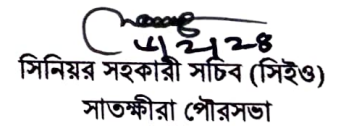 সিনিয়র সহকারী সচিব (সিইও)
সাতক্ষীরা পৌরসভা